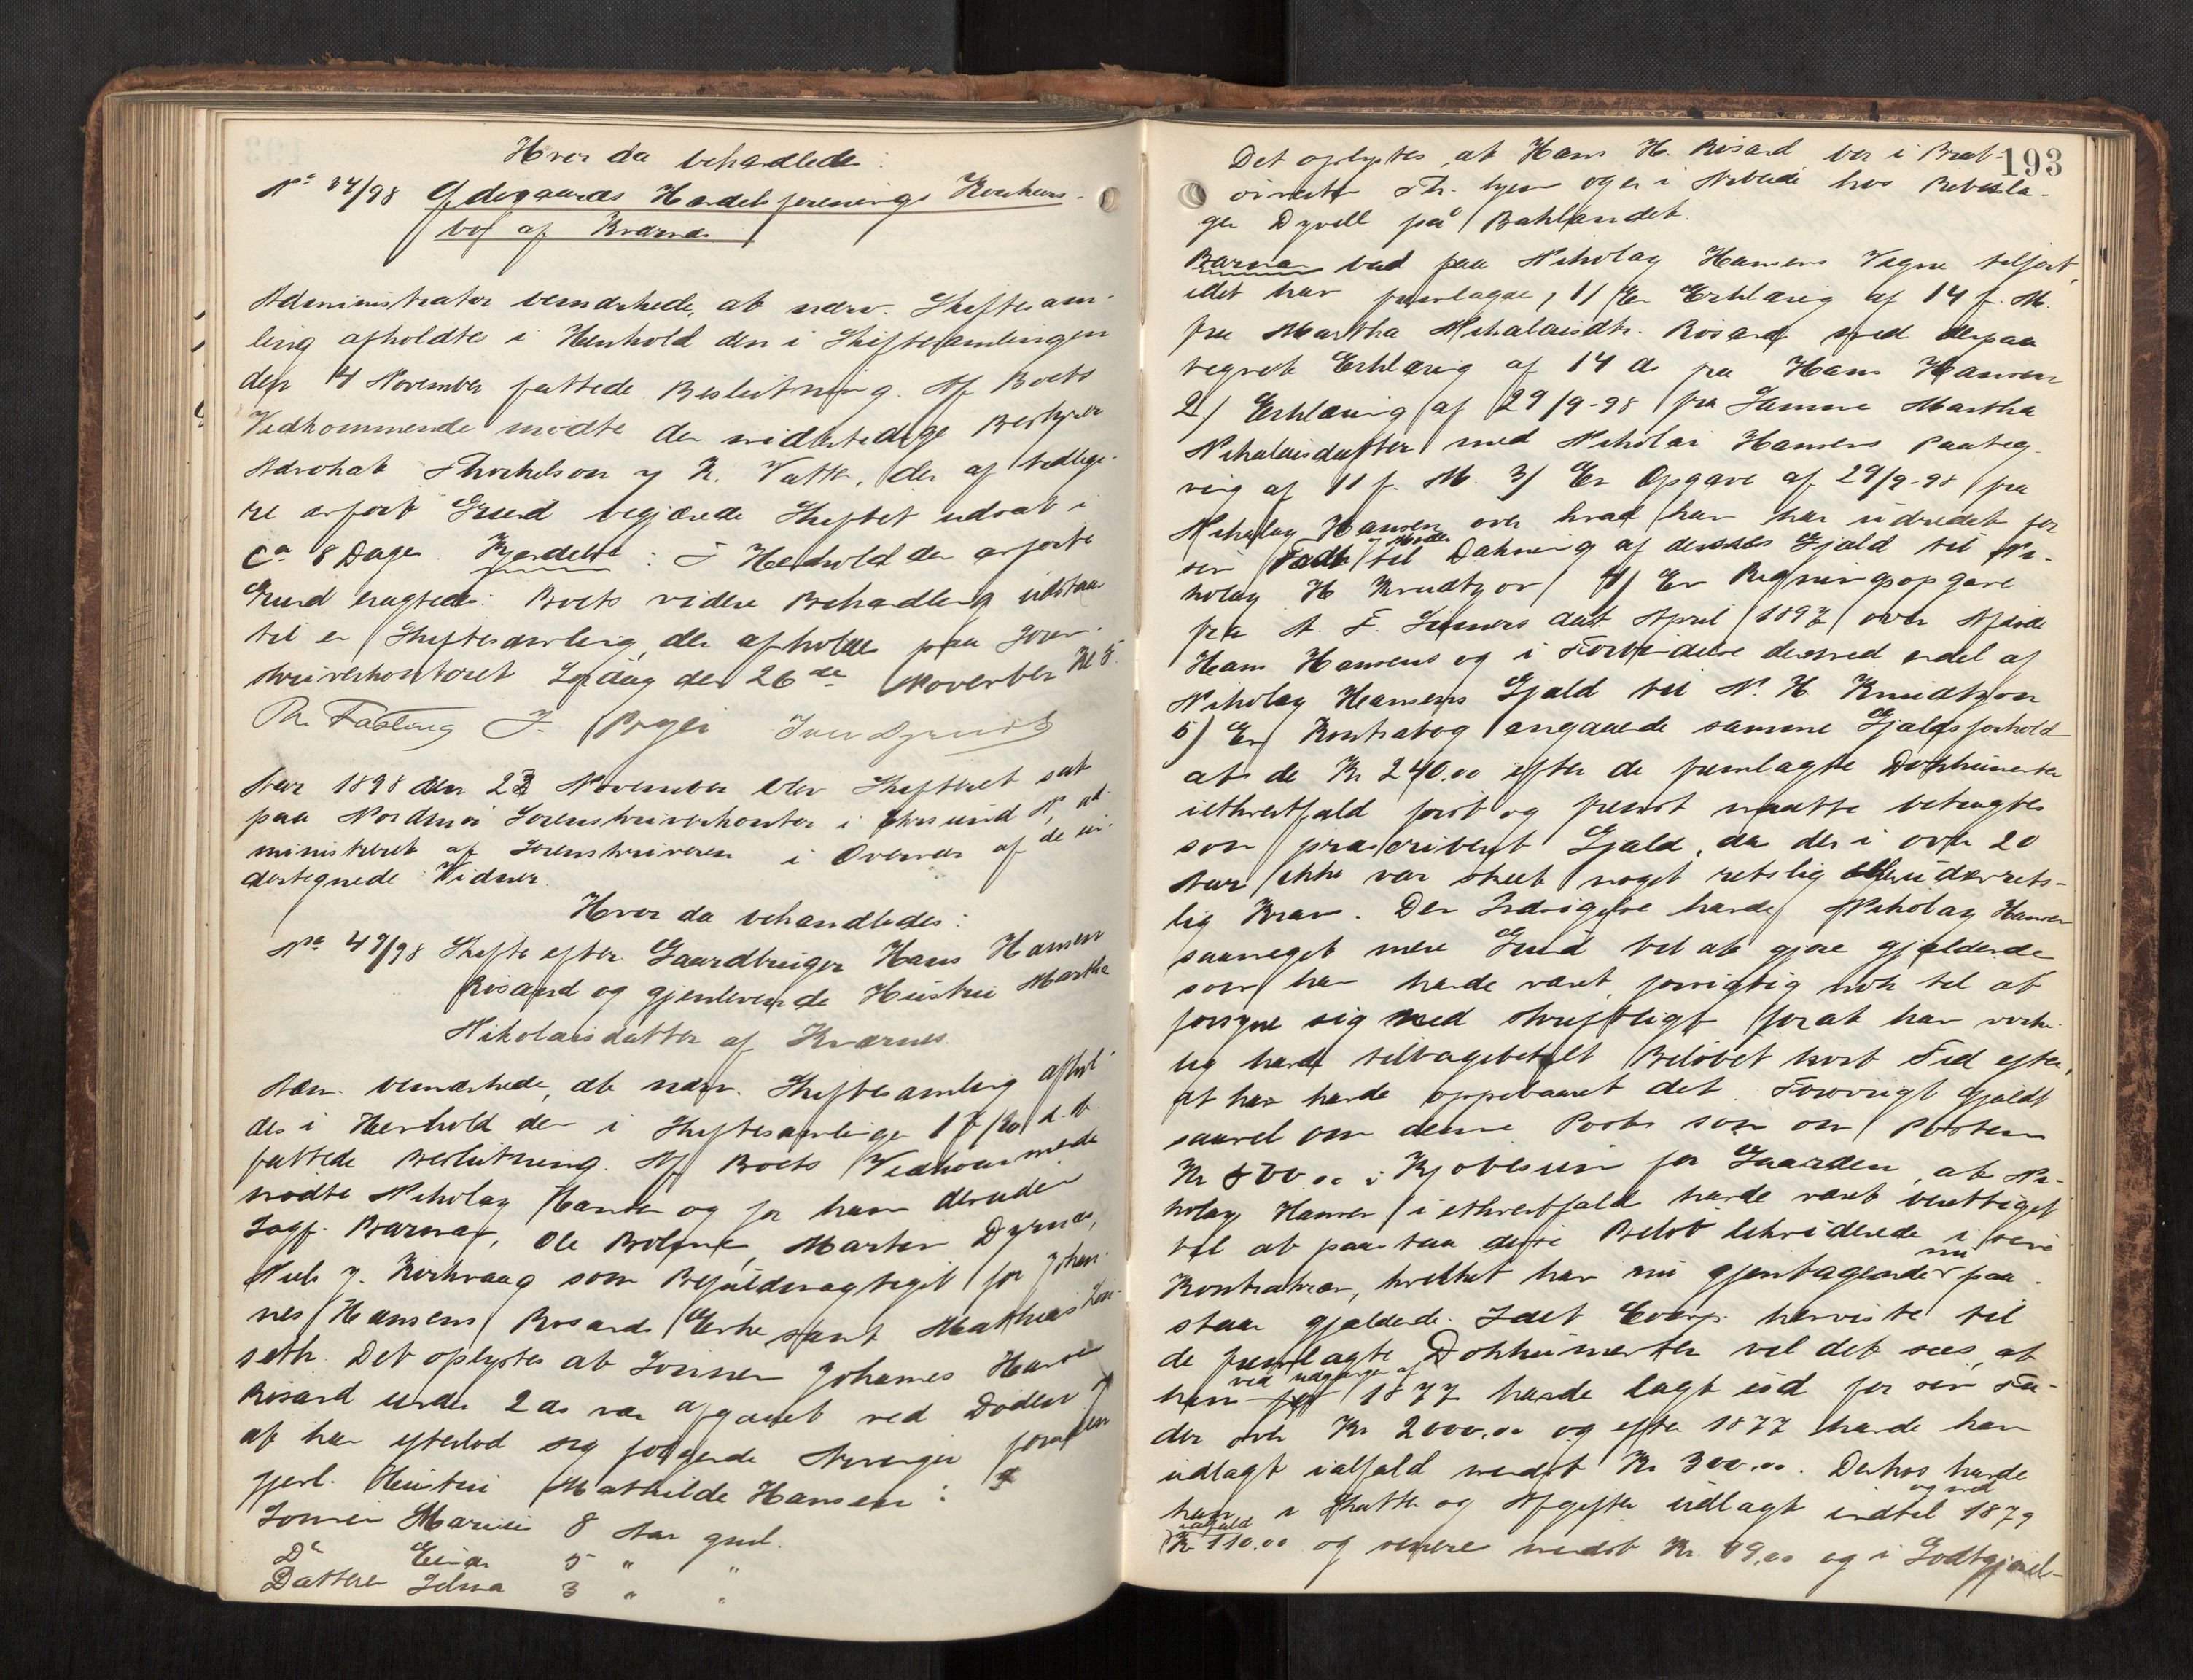 Hvor da behandledes:
No 34/98 Ødegaards Handelsforenings Konkurs-
bo af Kværnes
Administrator bemærkede, at nærv. Skiftesam-
ling afholdtes i Henhold den i Skiftesamlingen
den 4 November fattede Beslutning. Af Boets
Vedkommende mødte den midlertidige Bestyrer
Advokat Thorkelson y K. Vatt, der af tidlige-
re anført Grund begjærede Skiftet udsat i
ca 8 Dage. Kjendelse: I Henhold den anførte
Grund eragtedes: Boets videre Behandling udstaar
til en Skiftesamling, der afholdes paa Soren-
skriverkontoret Lørdag den 26de November Kl 5.
Th. Fasting J. Iver
Aar 1898 den 23 November blev Skifteret sat
paa Nordmør Sorenskriverkontor i Chrsund N, ad-
ministreret af Sorenskriveren i Overvær af de un-
dertegnede Vidner.
Hvor da behandledes:
No 47/98 Skifte efter Gaardbruger Hans Hansen
Røsand og gjenlevende Hustru Martha
Nikolaisdatter af Kværnes
Adm. bemærkede, at nærv. Skiftesamling afhol-
des i Henhold den i Skiftesamlingen d. A.
fattede Beslutning. Af Boets Vedkommende
mødte Nikolay Hansen og for ham desuden
Sagf. Barman, Ole Bolgne, Martin Dyrnæs,
Niels J. Kirkvaag som Befuldmægtiget for Johan-
nes Hansens Røsands Enke samt Mathias
seth. Det oplystes at Sønnen Johannes Hansen
Røsand under 2 ds var afgaaet ved Døden
at han efterlod sig følgende Arvinger foruden
gjenl. Hustru Mathilde Hansen:
Sønnen Marius 8 Aar gml.
Do Einar 5 " "
Datteren Selma 3 " "
193
Det oplystes, at Hans H. Røsand bor i Brat-
Th. hjem og er i Arbeide hos Rebsla-
ger Dyvell på Bakhlandet.
Barman bad paa Nikolay Hansens Vegne tilført,
idet han fremlagde, 1) En Erklæring af 14 f. M.
fra Martha Nikolaisdtr. Røsand med derpaa
tegnet Erklæring af 14 ds fra Hans Hansen
2) Erklæring af 29/9-98 fra Samme Martha
Nikolaisdatter med Nikolai Hansens Paateg-
ning af 11 f. M. 3) En Opgave af 29/9-98 fra
Nikolay Hansen over hvad han har udredet for
sin Fader og Moder til Dækning af dennes Gjæld til Ni-
kolay H Knudtzon 4) En Regningsopgave
fra A. F. dat. April 1897 over Afdøde
Hans Hansens og i Forbindelse dermed endel af
Nikolay Hansens Gjæld til N. H Knudtzon
5) En Kontrabog angaaende samme Gjældsforhold
at de Kr 240.00 efter de fremlagte Dokumenter
iethvertfald først og fremst maatte betragtes
som præskriberet Gjæld, da der i over 20
Aar ikke var skeet noget retslig eller udenrets-
lig Krav. Den Indsigelse havde Nikolay Hansen
saameget mere Grund til at gjøre gjældende
som han havde været forsigtig nok til at
forsyne sig med skriftligt for at han virke-
lig havde tilbagebetalt Beløbet kort Tid efter,
at han havde oppebaaret det. Forøvrigt gjaldt
saavel om denne Post som om Posten
Kr 800.00 i Kjøbesum for Gaarden, at Ni-
kolay Hansen i ethvertfald havde været berettiget
til at paastaa disse Beløb likviderede i sine
Kontrakrav, hvilket han nu gjentagende nu paa-
staar gjældende. Idet Comp. henviste til
de fremlagte Dokumenter vil det sees, at
han ved Udgangen af 1877 havde lagt ud for sin Fa-
der over Kr 2000.00 og efter 1877 havde han
udlagt ialfald mindst Kr 300.00. Derhos havde
han i Skatter og Afgifter udlagt indtil og med 1879
ialfald Kr 110.00 og senere mindst Kr 19.00 og i Godtgjørel-